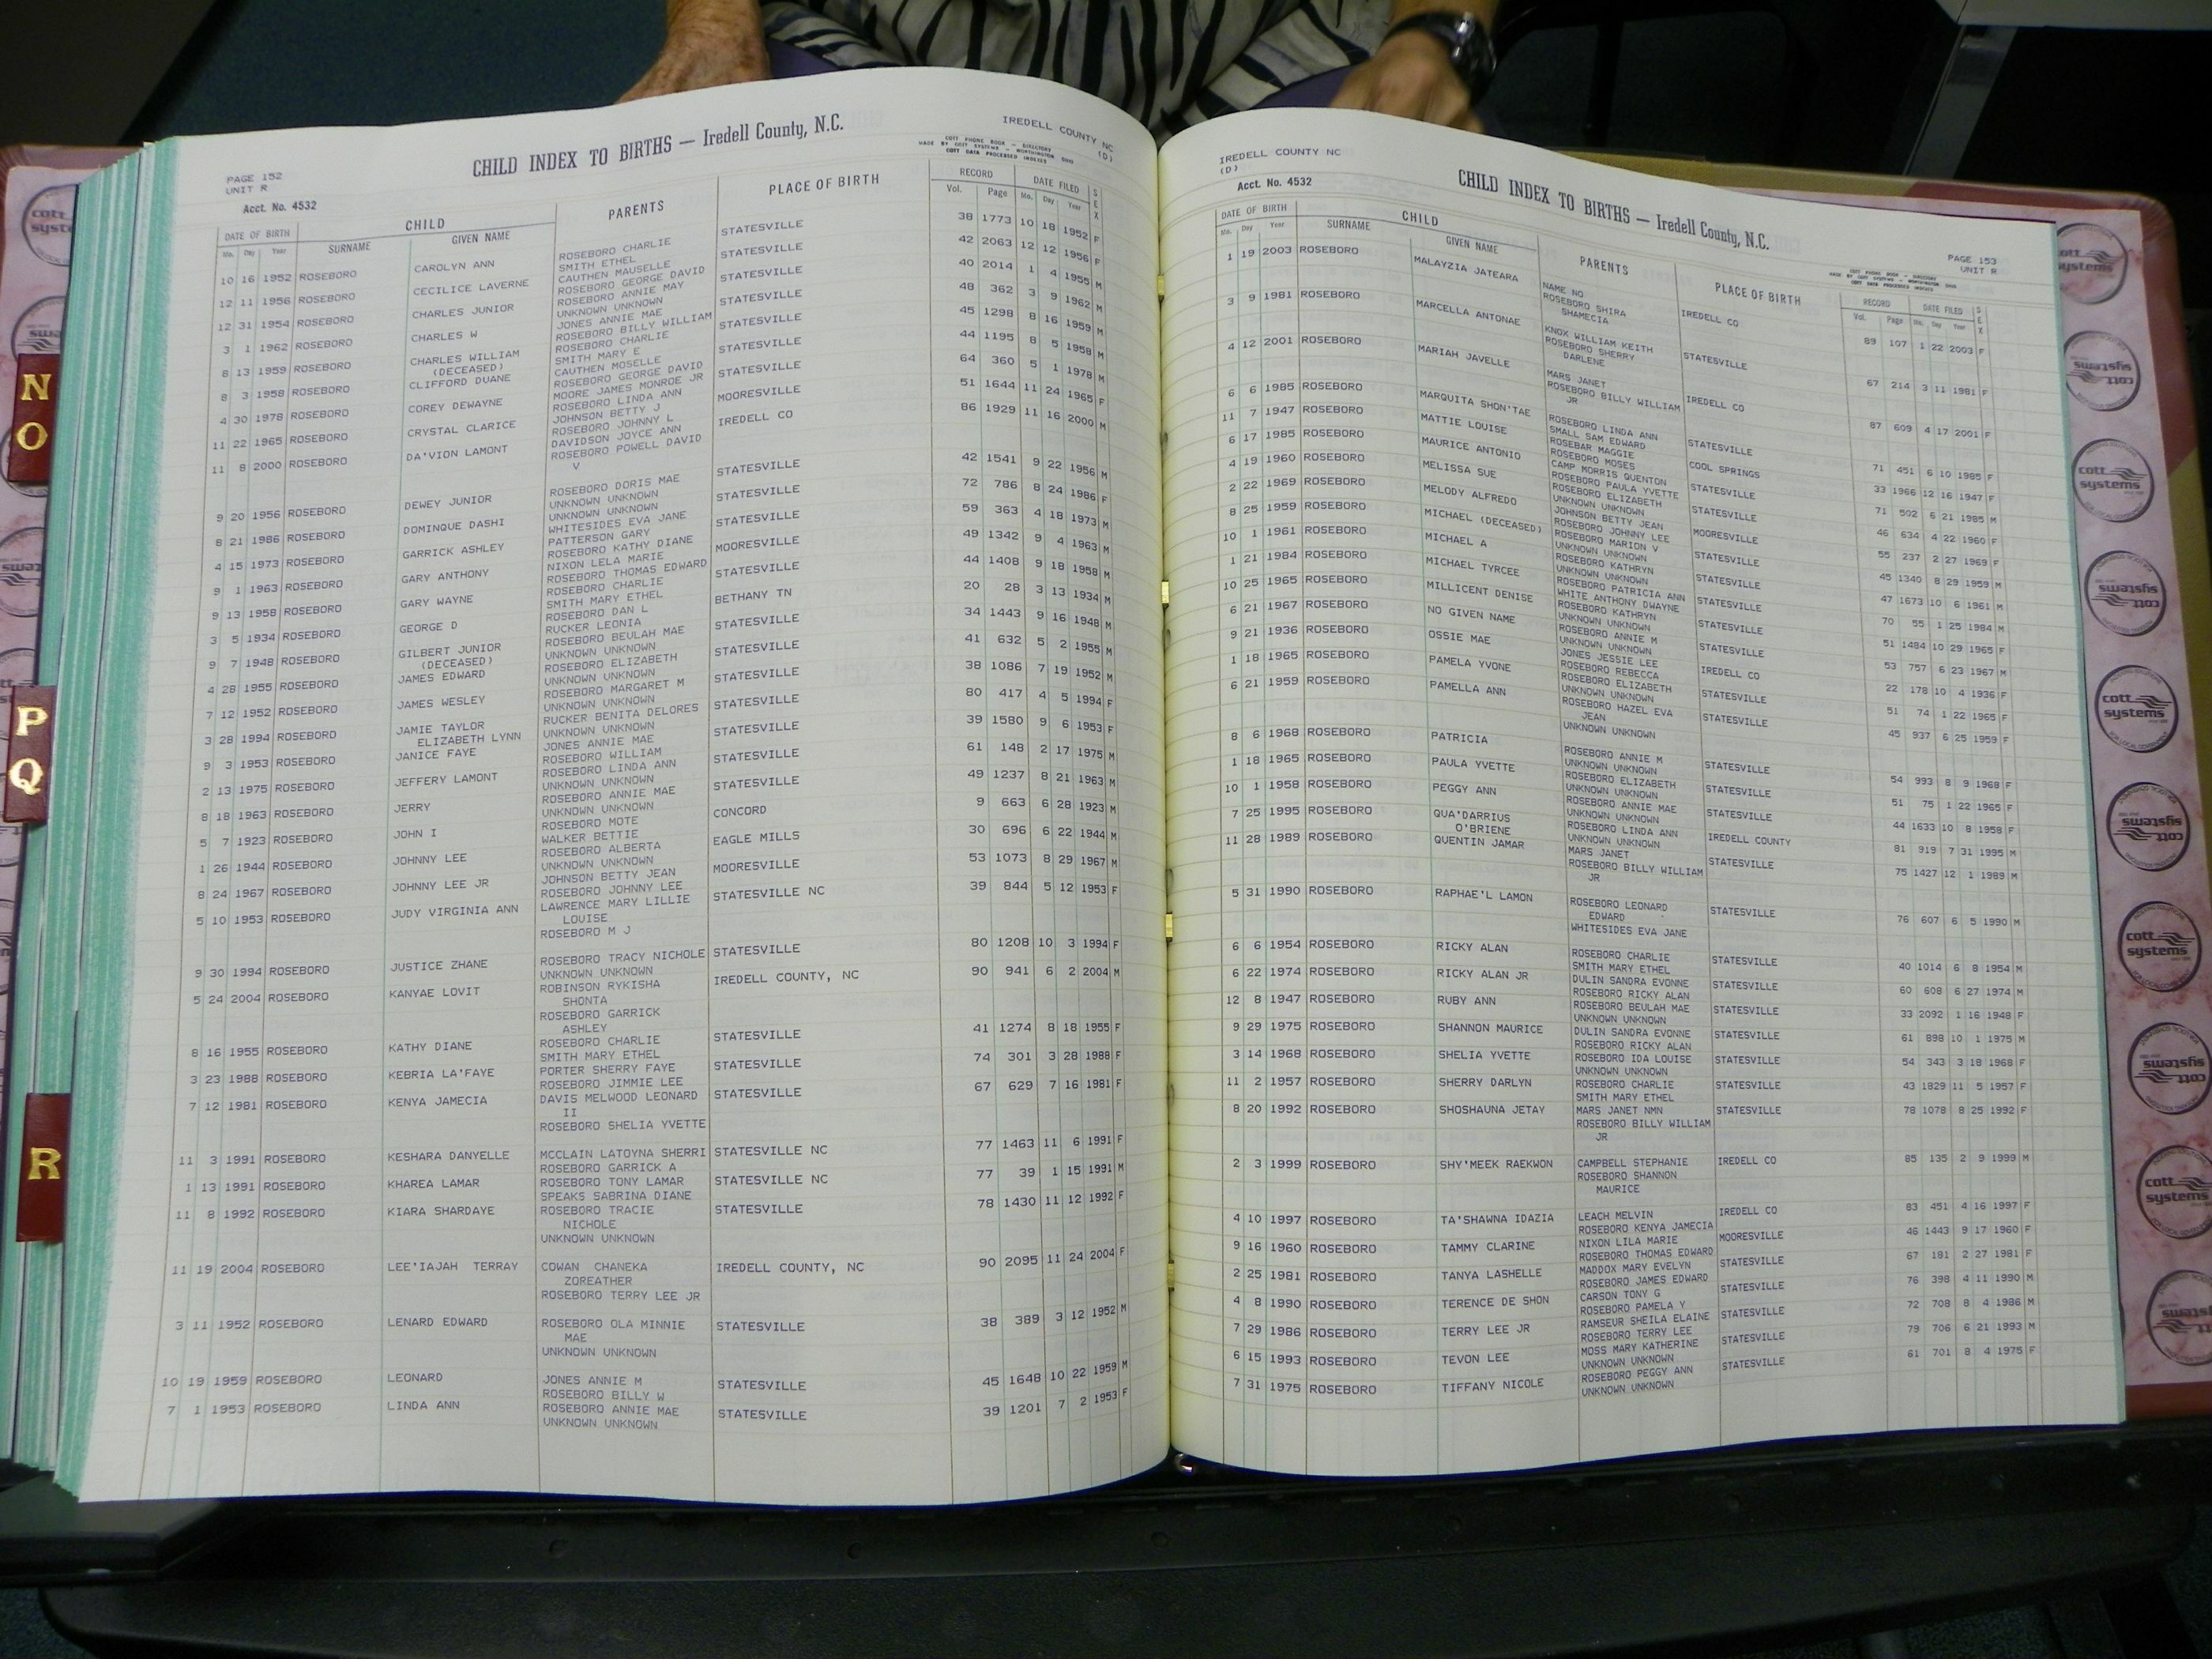 PAGE 152
UNIT R
CHILD INDEX TO BIRTHS — Iredell County, N.C.
IREDELL COUNTY NC
(D)
COTT PHONE BOOK — DIRECTORY
MADE BY COTT SYSTEMS — WORTHINGTON, OHIO
COTT DATA PROCESSED INDEXES
Acct. No. 4532
DATE OF BIRTH CHILD PARENTS PLACE OF BIRTH RECORD DATE FILED SEX
Mo. Day Year SURNAME GIVEN NAME Vol. Page Mo. Day Year
10 16 1952 ROSEBORO CAROLYN ANN ROSEBORO CHARLIE STATESVILLE 38 1773 10 18 1952 F
SMITH ETHEL
12 11 1956 ROSEBORO CECILICE LAVERNE CAUTHEN MAUSELLE STATESVILLE 42 2063 12 12 1956 F
ROSEBORO GEORGE DAVID
12 31 1954 ROSEBORO CHARLES JUNIOR ROSEBORO ANNIE MAY STATESVILLE 40 2014 1 4 1955 M
UNKNOWN UNKNOWN
3 1 1962 ROSEBORO CHARLES W JONES ANNIE MAE STATESVILLE 48 362 3 9 1962 M
ROSEBORO BILLY WILLIAM
8 13 1959 ROSEBORO CHARLES WILLIAM ROSEBORO CHARLIE STATESVILLE 45 1298 8 16 1959 M
(DECEASED) SMITH MARY E
8 3 1958 ROSEBORO CLIFFORD DUANE CAUTHEN MOSELLE STATESVILLE 44 1195 8 5 1958 M
ROSEBORO GEORGE DAVID
4 30 1978 ROSEBORO COREY DEWAYNE MOORE JAMES MONROE JR STATESVILLE 64 360 5 1 1978 M
ROSEBORO LINDA ANN
11 22 1965 ROSEBORO CRYSTAL CLARICE JOHNSON BETTY J MOORESVILLE 51 1644 11 24 1965 F
ROSEBORO JOHNNY L
11 8 2000 ROSEBORO DA'VION LAMONT DAVIDSON JOYCE ANN IREDELL CO 86 1929 11 16 2000 M
ROSEBORO POWELL DAVID
V
9 20 1956 ROSEBORO DEWEY JUNIOR ROSEBORO DORIS MAE STATESVILLE 42 1541 9 22 1956 M
UNKNOWN UNKNOWN
8 21 1986 ROSEBORO DOMINQUE DASHI UNKNOWN UNKNOWN STATESVILLE 72 786 8 24 1986 F
WHITESIDES EVA JANE
4 15 1973 ROSEBORO GARRICK ASHLEY PATTERSON GARY STATESVILLE 59 363 4 18 1973 M
ROSEBORO KATHY DIANE
9 1 1963 ROSEBORO GARY ANTHONY NIXON LELA MARIE MOORESVILLE 49 1342 9 4 1963 M
ROSEBORO THOMAS EDWARD
9 13 1958 ROSEBORO GARY WAYNE ROSEBORO CHARLIE STATESVILLE 44 1408 9 18 1958 M
SMITH MARY ETHEL
3 5 1934 ROSEBORO GEORGE D ROSEBORO DAN L BETHANY TN 20 28 3 13 1934 M
RUCKER LEONIA
9 7 1948 ROSEBORO GILBERT JUNIOR ROSEBORO BEULAH MAE STATESVILLE 34 1443 9 16 1948 M
(DECEASED) UNKNOWN UNKNOWN
4 28 1955 ROSEBORO JAMES EDWARD ROSEBORO ELIZABETH STATESVILLE 41 632 5 2 1955 M
UNKNOWN UNKNOWN
7 12 1952 ROSEBORO JAMES WESLEY ROSEBORO MARGARET M STATESVILLE 38 1086 7 19 1952 M
UNKNOWN UNKNOWN
3 28 1994 ROSEBORO JAMIE TAYLOR RUCKER BENITA DELORES STATESVILLE 80 417 4 5 1994 F
ELIZABETH LYNN UNKNOWN UNKNOWN
9 3 1953 ROSEBORO JANICE FAYE JONES ANNIE MAE STATESVILLE 39 1580 9 6 1953 F
ROSEBORO WILLIAM
2 13 1975 ROSEBORO JEFFERY LAMONT ROSEBORO LINDA ANN STATESVILLE 61 148 2 17 1975 M
UNKNOWN UNKNOWN
8 18 1963 ROSEBORO JERRY ROSEBORO ANNIE MAE STATESVILLE 49 1237 8 21 1963 M
UNKNOWN UNKNOWN
5 7 1923 ROSEBORO JOHN I ROSEBORO MOTE CONCORD 9 663 6 28 1923 M
WALKER BETTIE
1 26 1944 ROSEBORO JOHNNY LEE ROSEBORO ALBERTA EAGLE MILLS 30 696 6 22 1944 M
UNKNOWN UNKNOWN
8 24 1967 ROSEBORO JOHNNY LEE JR JOHNSON BETTY JEAN MOORESVILLE 53 1073 8 29 1967 M
ROSEBORO JOHNNY LEE
5 10 1953 ROSEBORO JUDY VIRGINIA ANN LAWRENCE MARY LILLIE STATESVILLE NC 39 844 5 12 1953 F
LOUISE
ROSEBORO M J
9 30 1994 ROSEBORO JUSTICE ZHANE ROSEBORO TRACY NICHOLE STATESVILLE 80 1208 10 3 1994 F
UNKNOWN UNKNOWN
5 24 2004 ROSEBORO KANYAE LOVIT ROBINSON RYKISHA IREDELL COUNTY, NC 90 941 6 2 2004 M
SHONTA
ROSEBORO GARRICK
ASHLEY
8 16 1955 ROSEBORO KATHY DIANE ROSEBORO CHARLIE STATESVILLE 41 1274 8 18 1955 F
SMITH MARY ETHEL
3 23 1988 ROSEBORO KEBRIA LA'FAYE PORTER SHERRY FAYE STATESVILLE 74 301 3 28 1988 F
ROSEBORO JIMMIE LEE
7 12 1981 ROSEBORO KENYA JAMECIA DAVIS MELWOOD LEONARD STATESVILLE 67 629 7 16 1981 F
II
ROSEBORO SHELIA YVETTE
11 3 1991 ROSEBORO KESHARA DANYELLE MCCLAIN LATOYNA SHERRI STATESVILLE NC 77 1463 11 6 1991 F
ROSEBORO GARRICK A
1 13 1991 ROSEBORO KHAREA LAMAR ROSEBORO TONY LAMAR STATESVILLE NC 77 39 1 15 1991 M
SPEAKS SABRINA DIANE
11 8 1992 ROSEBORO KIARA SHARDAYE ROSEBORO TRACIE STATESVILLE 78 1430 11 12 1992 F
NICHOLE
UNKNOWN UNKNOWN
11 19 2004 ROSEBORO LEE'IAJAH TERRAY COWAN CHANEKA IREDELL COUNTY, NC 90 2095 11 24 2004 F
ZOREATHER
ROSEBORO TERRY LEE JR
3 11 1952 ROSEBORO LENARD EDWARD ROSEBORO OLA MINNIE STATESVILLE 38 389 3 12 1952 M
MAE
UNKNOWN UNKNOWN
10 19 1959 ROSEBORO LEONARD JONES ANNIE M STATESVILLE 45 1648 10 22 1959 M
ROSEBORO BILLY W
7 1 1953 ROSEBORO LINDA ANN ROSEBORO ANNIE MAE STATESVILLE 39 1201 7 2 1953 F
UNKNOWN UNKNOWN
IREDELL COUNTY NC
(D)
Acct. No. 4532
CHILD INDEX TO BIRTHS — Iredell County, N.C.
PAGE 153
UNIT R
COTT PHONE BOOK — DIRECTORY
MADE BY COTT SYSTEMS — WORTHINGTON, OHIO
COTT DATA PROCESSED INDEXES
DATE OF BIRTH CHILD PARENTS PLACE OF BIRTH RECORD DATE FILED SEX
Mo. Day Year SURNAME GIVEN NAME Vol. Page Mo. Day Year
1 19 2003 ROSEBORO MALAYZIA JATEARA NAME NO IREDELL CO 89 107 1 22 2003 F
ROSEBORO SHIRA
SHAMECIA
3 9 1981 ROSEBORO MARCELLA ANTONAE KNOX WILLIAM KEITH STATESVILLE 67 214 3 11 1981 F
ROSEBORO SHERRY
DARLENE
4 12 2001 ROSEBORO MARIAH JAVELLE MARS JANET IREDELL CO 87 609 4 17 2001 F
ROSEBORO BILLY WILLIAM
JR
6 6 1985 ROSEBORO MARQUITA SHON'TAE ROSEBORO LINDA ANN STATESVILLE 71 451 6 10 1985 F
SMALL SAM EDWARD
11 7 1947 ROSEBORO MATTIE LOUISE ROSEBAR MAGGIE COOL SPRINGS 33 1966 12 16 1947 F
ROSEBORO MOSES
6 17 1985 ROSEBORO MAURICE ANTONIO CAMP MORRIS QUENTON STATESVILLE 71 502 6 21 1985 M
ROSEBORO PAULA YVETTE
4 19 1960 ROSEBORO MELISSA SUE ROSEBORO ELIZABETH STATESVILLE 46 634 4 22 1960 F
UNKNOWN UNKNOWN
2 22 1969 ROSEBORO MELODY ALFREDO JOHNSON BETTY JEAN MOORESVILLE 55 237 2 27 1969 F
ROSEBORO JOHNNY LEE
8 25 1959 ROSEBORO MICHAEL (DECEASED) ROSEBORO MARION V STATESVILLE 45 1340 8 29 1959 M
UNKNOWN UNKNOWN
10 1 1961 ROSEBORO MICHAEL A ROSEBORO KATHRYN STATESVILLE 47 1673 10 6 1961 M
UNKNOWN UNKNOWN
1 21 1984 ROSEBORO MICHAEL TYRCEE ROSEBORO PATRICIA ANN STATESVILLE 70 55 1 25 1984 M
WHITE ANTHONY DWAYNE
10 25 1965 ROSEBORO MILLICENT DENISE ROSEBORO KATHRYN STATESVILLE 51 1484 10 29 1965 F
UNKNOWN UNKNOWN
6 21 1967 ROSEBORO NO GIVEN NAME ROSEBORO ANNIE M STATESVILLE 53 757 6 23 1967 M
UNKNOWN UNKNOWN
9 21 1936 ROSEBORO OSSIE MAE JONES JESSIE LEE IREDELL CO 22 178 10 4 1936 F
ROSEBORO REBECCA
1 18 1965 ROSEBORO PAMELA YVONE ROSEBORO ELIZABETH STATESVILLE 51 74 1 22 1965 F
UNKNOWN UNKNOWN
6 21 1959 ROSEBORO PAMELLA ANN ROSEBORO HAZEL EVA STATESVILLE 45 937 6 25 1959 F
JEAN
UNKNOWN UNKNOWN
8 6 1968 ROSEBORO PATRICIA ROSEBORO ANNIE M STATESVILLE 54 993 8 9 1968 F
UNKNOWN UNKNOWN
1 18 1965 ROSEBORO PAULA YVETTE ROSEBORO ELIZABETH STATESVILLE 51 75 1 22 1965 F
UNKNOWN UNKNOWN
10 1 1958 ROSEBORO PEGGY ANN ROSEBORO ANNIE MAE STATESVILLE 44 1633 10 8 1958 F
UNKNOWN UNKNOWN
7 25 1995 ROSEBORO QUA'DARRIUS ROSEBORO LINDA ANN IREDELL COUNTY 81 919 7 31 1995 M
O'BRIENE UNKNOWN UNKNOWN
11 28 1989 ROSEBORO QUENTIN JAMAR MARS JANET STATESVILLE 75 1427 12 1 1989 M
ROSEBORO BILLY WILLIAM
JR
5 31 1990 ROSEBORO RAPHAE'L LAMON ROSEBORO LEONARD STATESVILLE 76 607 6 5 1990 M
EDWARD
WHITESIDES EVA JANE
6 6 1954 ROSEBORO RICKY ALAN ROSEBORO CHARLIE STATESVILLE 40 1014 6 8 1954 M
SMITH MARY ETHEL
6 22 1974 ROSEBORO RICKY ALAN JR DULIN SANDRA EVONNE STATESVILLE 60 608 6 27 1974 M
ROSEBORO RICKY ALAN
12 8 1947 ROSEBORO RUBY ANN ROSEBORO BEULAH MAE STATESVILLE 33 2092 1 16 1948 F
UNKNOWN UNKNOWN
9 29 1975 ROSEBORO SHANNON MAURICE DULIN SANDRA EVONNE STATESVILLE 61 898 10 1 1975 M
ROSEBORO RICKY ALAN
3 14 1968 ROSEBORO SHELIA YVETTE ROSEBORO IDA LOUISE STATESVILLE 54 343 3 18 1968 F
UNKNOWN UNKNOWN
11 2 1957 ROSEBORO SHERRY DARLYN ROSEBORO CHARLIE STATESVILLE 43 1829 11 5 1957 F
SMITH MARY ETHEL
8 20 1992 ROSEBORO SHOSHAUNA JETAY MARS JANET NMN STATESVILLE 78 1078 8 25 1992 F
ROSEBORO BILLY WILLIAM
JR
2 3 1999 ROSEBORO SHY'MEEK RAEKWON CAMPBELL STEPHANIE IREDELL CO 85 135 2 9 1999 M
ROSEBORO SHANNON
MAURICE
4 10 1997 ROSEBORO TA'SHAWNA IDAZIA LEACH MELVIN IREDELL CO 83 451 4 16 1997 F
ROSEBORO KENYA JAMECIA
9 16 1960 ROSEBORO TAMMY CLARINE NIXON LILA MARIE MOORESVILLE 46 1443 9 17 1960 F
ROSEBORO THOMAS EDWARD
2 25 1981 ROSEBORO TANYA LASHELLE MADDOX MARY EVELYN STATESVILLE 67 181 2 27 1981 F
ROSEBORO JAMES EDWARD
4 8 1990 ROSEBORO TERENCE DE SHON CARSON TONY G STATESVILLE 76 398 4 11 1990 M
ROSEBORO PAMELA Y
7 29 1986 ROSEBORO TERRY LEE JR RAMSEUR SHEILA ELAINE STATESVILLE 72 708 8 4 1986 M
ROSEBORO TERRY LEE
6 15 1993 ROSEBORO TEVON LEE MOSS MARY KATHERINE STATESVILLE 79 706 6 21 1993 M
UNKNOWN UNKNOWN
7 31 1975 ROSEBORO TIFFANY NICOLE ROSEBORO PEGGY ANN STATESVILLE 61 701 8 4 1975 F
UNKNOWN UNKNOWN
N
O
P
Q
R
cott
systems